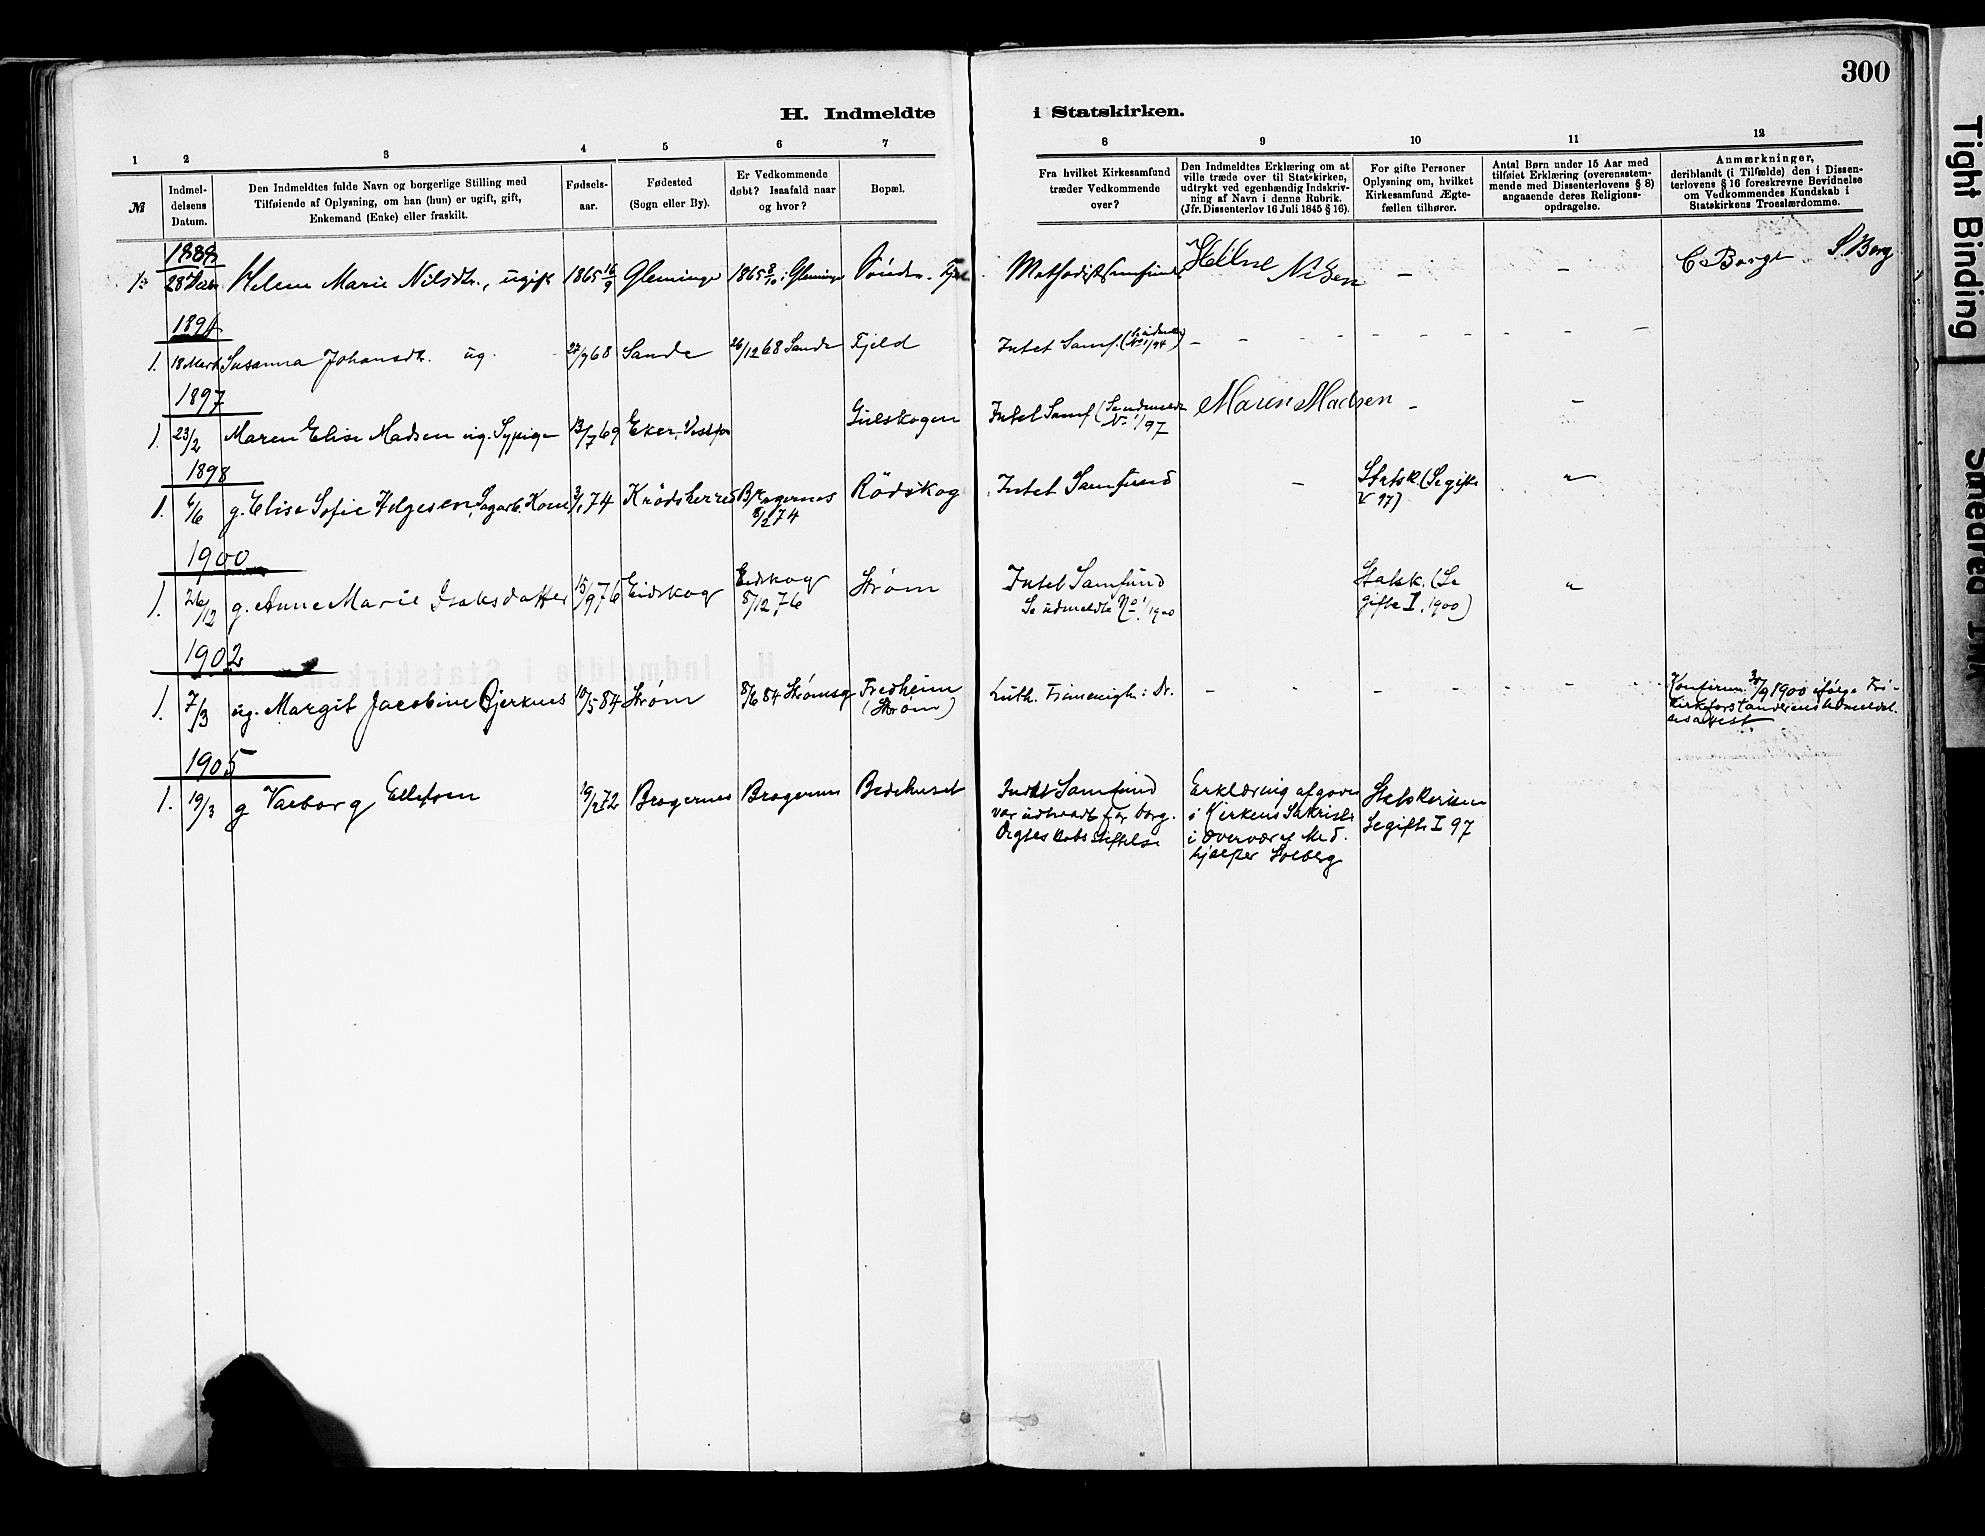 300
H. Indmeldte i Statskirken.
1 2 3 4 5 6 7 8 9 10 11 12
№
Indmel-
delsens
Datum.
Den Indmeldtes fulde Navn og borgerlige Stilling med
Tilføiende af Oplysning, om han (hun) er ugift, gift,
Enkemand (Enke) eller fraskilt.
Fødsels-
aar.
Fødested
(Sogn eller By).
Er Vedkommende
døbt? Isaafald naar
og hvor?
Bopæl.
Fra hvilket Kirkesamfund
træder Vedkommende
over?
Den Indmeldtes Erklæring om at
ville træde over til Stat-kirken,
udtrykt ved egenhændig Indskriv-
ning af Navn i denne Rubrik.
(Jfr. Dissenterlov 16 Juli 1845 § 16).
For gifte Personer
Oplysning om, hvilket
Kirkesamfund Ægte-
fællen tilhører.
Antal Børn under 15 Aar med
tilføiet Erklæring (overensstem-
mende med Dissenterlovens § 8)
angaaende deres Religions-
opdragelse.
Anmærkninger,
deriblandt (i Tilfælde) den i Dissen-
terlovens § 16 foreskrevne Bevidnelse
om Vedkommendes Kundskab i
Statskirkens Troeslærdomme.
1889
1. 28 Helene Marie Nilsdtr., ugift 1865 16/9 Glemminge 1865 8/10 i Glemminge Methodistsamfundet Nilsen - - C Borge S. Borg
1894
1. 18 Marts Susanna Johansdt. ug. 27/9 68 Sande 26/12 68 Sande Fjeld Intet Samf. (Se udmeldte No 1/94) - - - - - - - - -
1897
1. 23/2 Maren Elise Madsen ug. Sypige 13/7 69 Eker, Vestfos Gulskogen Intet Samf (Se udmeldte No 1/97 Maren Madsen - -
1898
1. 6/6 g. Elise Sofie Helgesen, Sagarb. Kone 3/1 74 Krødsherred Bragernes 8/2 74 Rødskog Intet Samfund - Statsk. (Se gifte
V 97) "
1900
1. 26/12 g. Anne Marie Isaksdatter 15/9 76 Eidskog Eidskog 8/12 76 Strøm Intet Samfund
Se udmeldte No 1/1900 Statsk. (Se
gifte I, 1900) "
1902
1. 7/3 ug. Margit Jacobine Bjerknes 10/5 84 Strøm 8/6 84 Strømsg Fredheim
(Strøm) Luth. Frimenigh: Dr. - - - - - - - - Konfirm. 30/9 1900 ifølge Fri-
kirkeforstanderens Udmeldel-
sesattest
1905
1. 19/3 g Valborg Ellefsen 19/2 72 Bragernes Bragernes Bedehuset Intet Samfund
var udtraadt før borg.
Ægteskabsstiftelse Erklæring afgaves
i Kirkens Sakristi
i Overvær af Med-
hjælper Solberg Statskirken
Se gifte I 97
Tight Binding
Smeared Ink